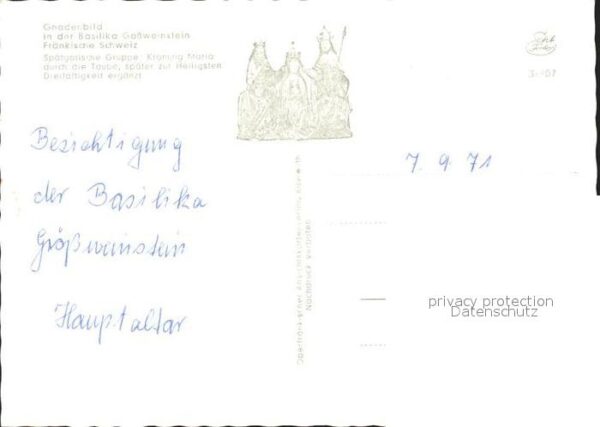 Gnadenbild
in der Basilika Gößweinstein
Fränkische Schweiz
Spätgotische Gruppe: Krönung Mariä
durch die Taube, später zur Heiligsten
Dreifaltigkeit ergänzt
Besichtigung
der Basilika
Größweinstein
Hauptaltar
7. 9. 71
Nachdruck verboten
privacy protection
Datenschutz